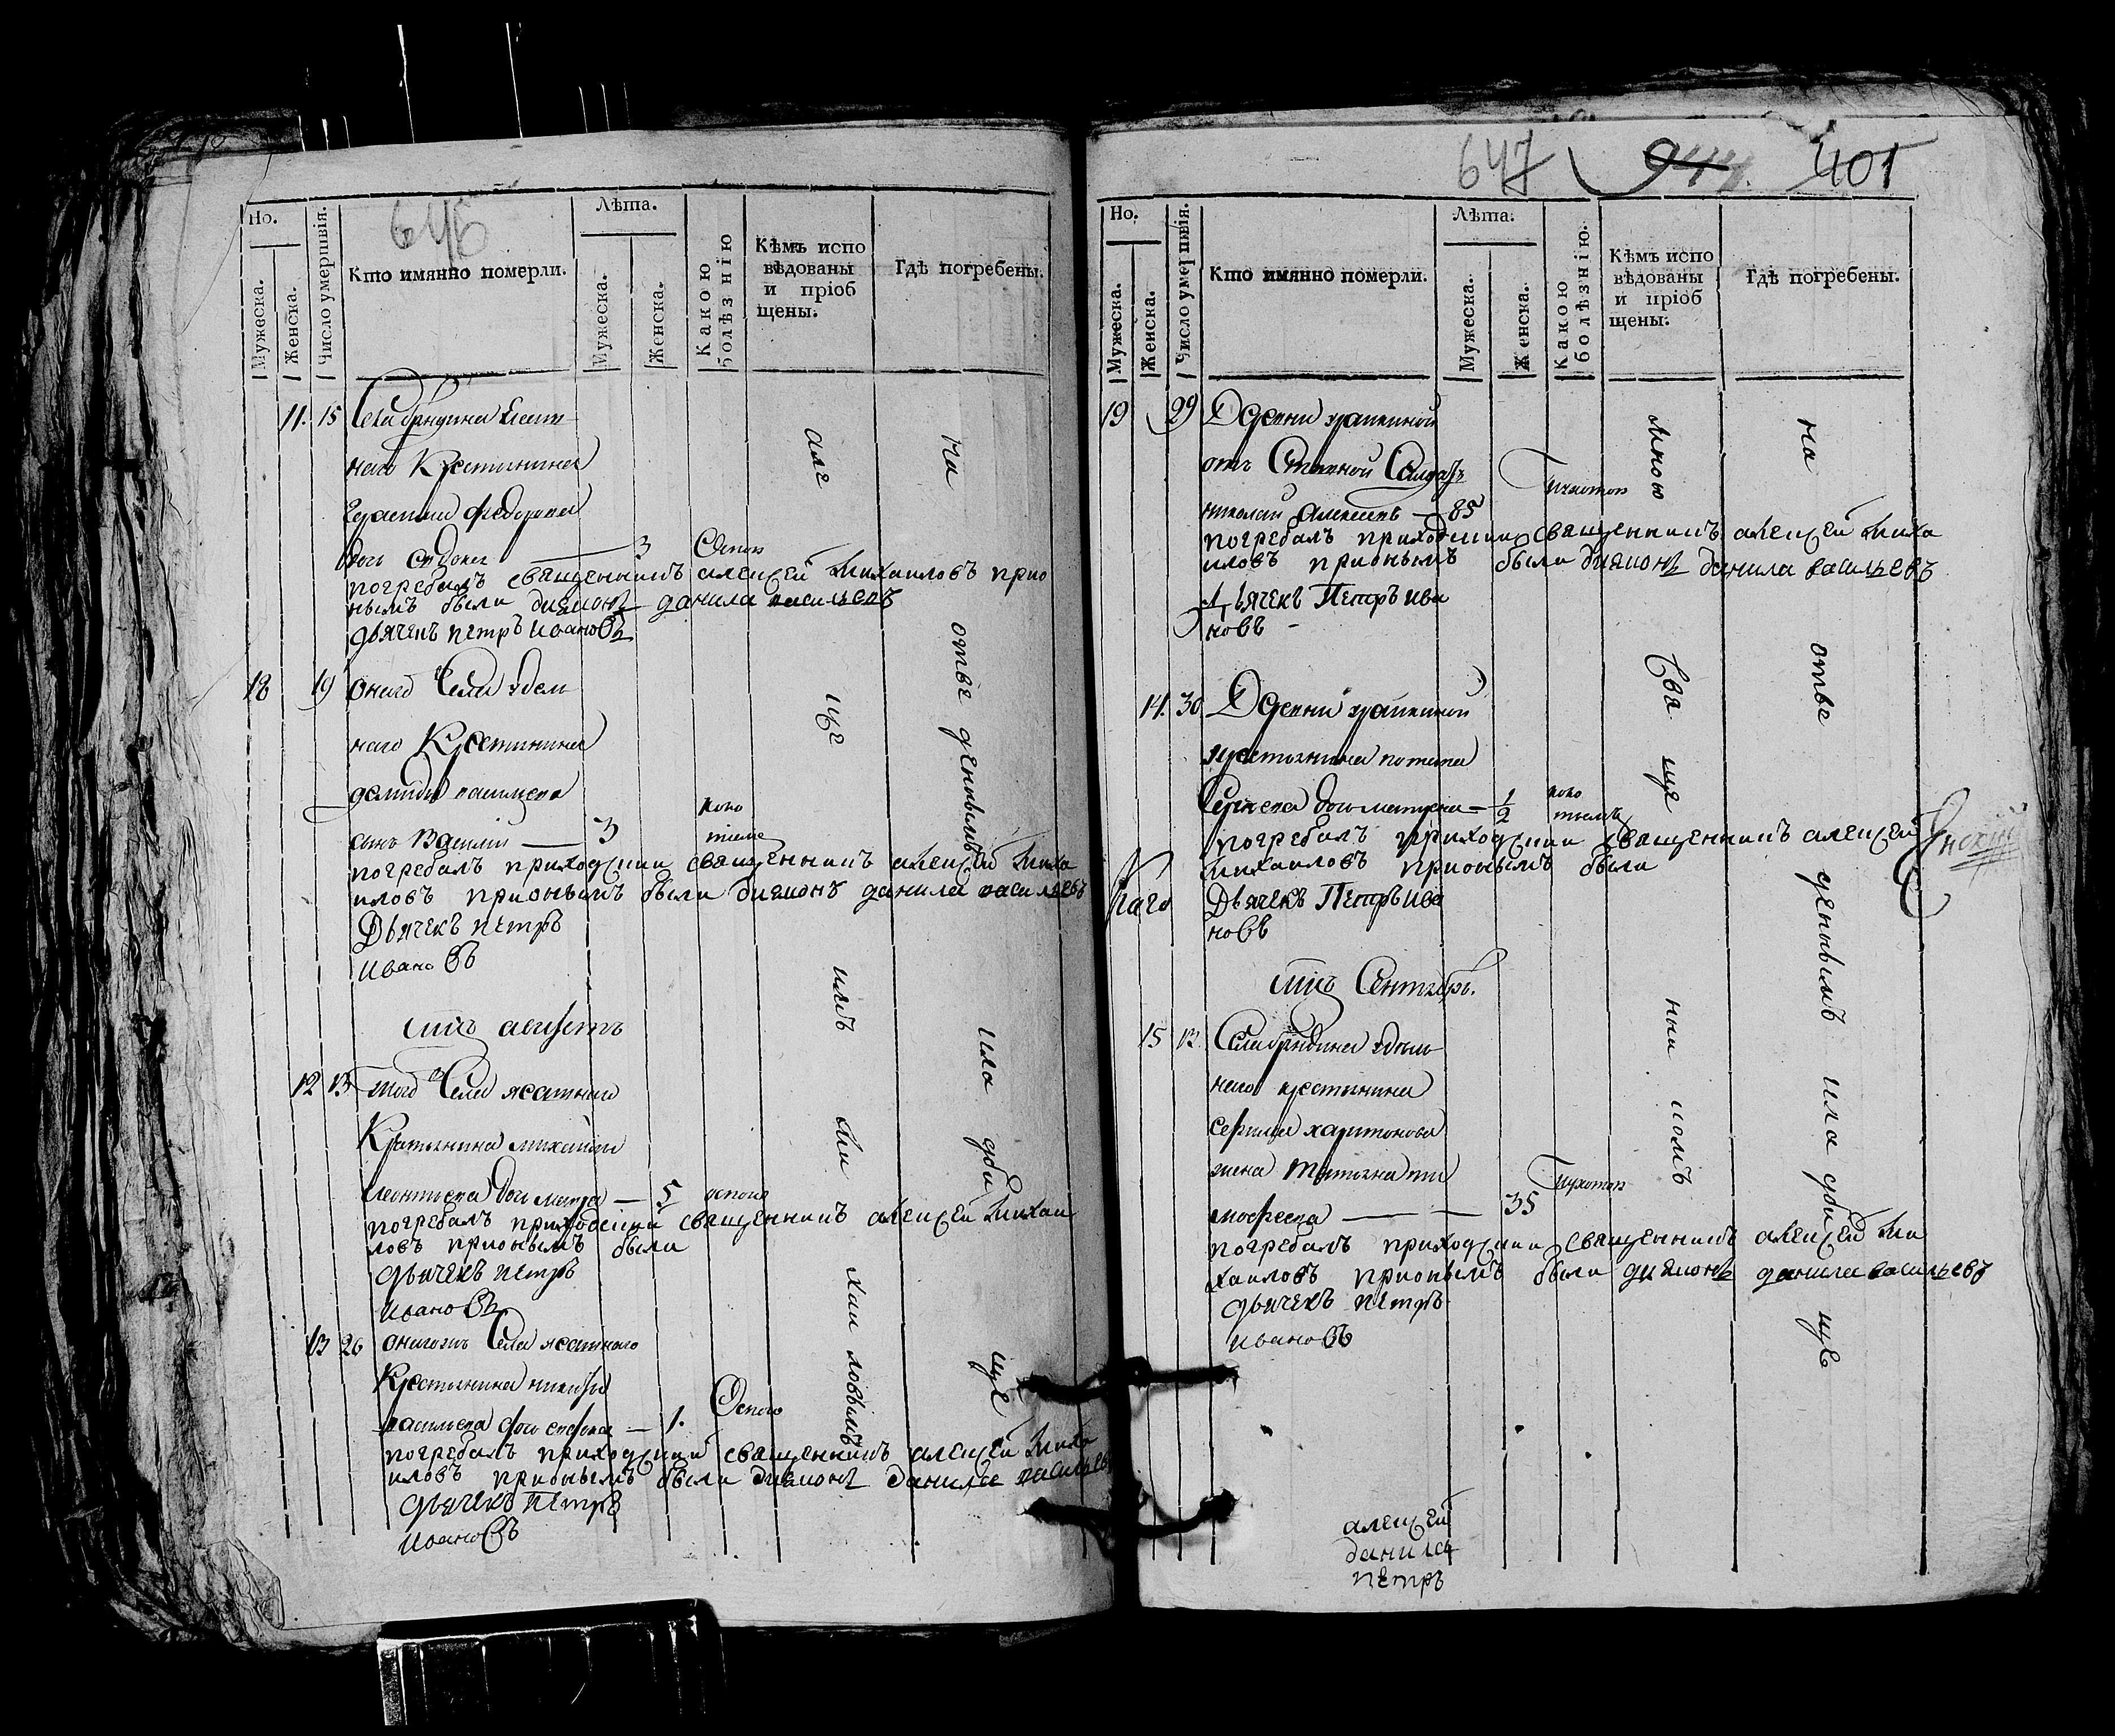 646
Но.
Мужеска.
Женска.
Число умершвія.
Кто имянно померли.
Лѣта.
Мужеска.
Женска.
Какою болѣзнію
Кѣмъ испо
вѣдованы
и пріоб
щены.
Гдѣ погребены.
11. 15 Села
наго Крестьянина
Федорова
дочь 3
погребалъ священникъ алексей михаиловъ прио
нымъ были дияконъ данила васильевъ
дьячекъ петръ Ивановъ
18 19 оного Села удел
наго Крестьянина
васильева
сынъ Василии — 3
погребалъ приходскии священникъ алексей миха
иловъ прионымъ были дияконъ данила васильевъ
Дьячекъ петръ
Ивановъ
мцъ августъ
12 13 того Села ясашнаго
Крестьянина михаилы
леонтьева дочь — 5 оспою
погребалъ приходский священникъ алексей михаи
ловъ прионымъ были
Дьячекъ петръ
Ивановъ
13 26 Села ясашнаго
Крестьянина
васильева дочь — 1. Оспою
погребалъ приходскии священникъ алексей миха
иловъ прионымъ были дияконъ данила васильевъ
Дьячекъ петръ
Ивановъ
але
ксе
емъ
ми
хаи
ловымъ
на
отве
денымъ
кла
дби
ще
647 944. 401
Но.
Мужеска.
Женска.
Число умершвія.
Кто имянно померли.
Лѣта.
Мужеска.
Женска.
Какою болѣзнію.
Кѣмъ испо
вѣдованы
и пріоб
щены.
Гдѣ погребены.
19 29 Деревни
отъ Ставной Салдатъ
николай алексеевъ — 85 чихотою
погребалъ приходскии священникъ алексей миха
иловъ прионымъ были дияконъ данила васильевъ
Дьячекъ Петръ Ива
новъ
14. 30 Деревни
крестьянина потапа
Сергеева дочь матрена — 1/2
погребалъ приходскии священникъ алексей
михаиловъ прионымъ были
Дьячекъ Петръ Ива
новъ
мцъ Сентябрь.
15 12 Села удель
наго крестьянина
харитонова
жена Татьяна ти
мофеева — 35 чихотою
погребалъ приходскии священникъ алексей ми
хаиловъ прионымъ были дияконъ данила васильевъ
дьячекъ петръ
Ивановъ
мною
Свя
ще
ни
комъ
на
отве
денымъ
кла
дби
ще
алексей
данила
петръ